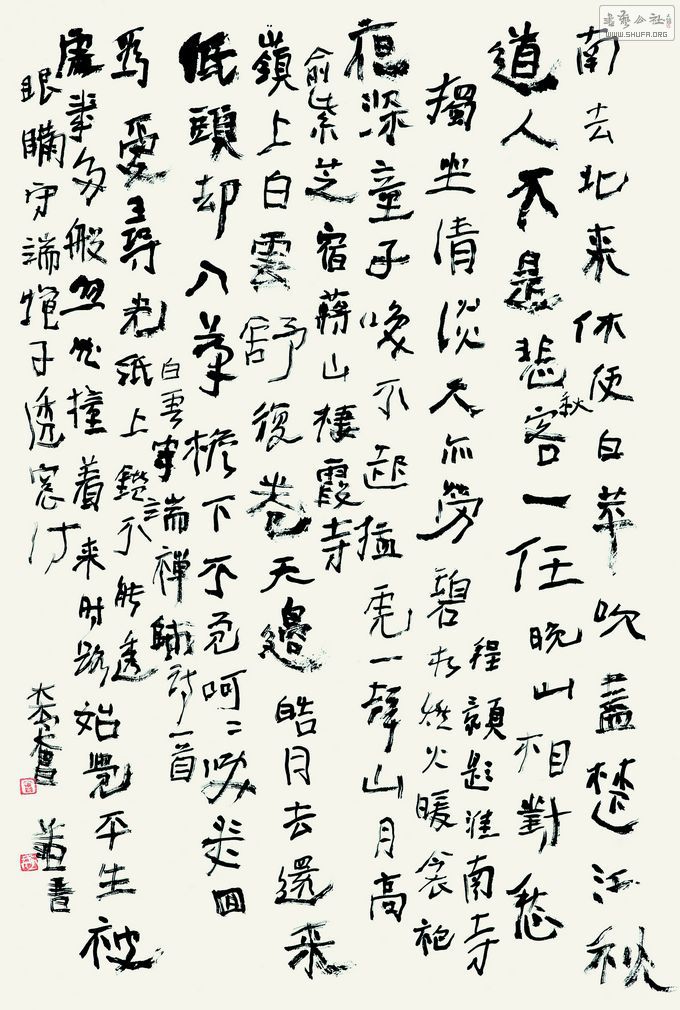 南去北来休便白萍吹盡楚江秋
道人不是悲秋客一任晚山相對愁
程顥題淮南寺
獨坐清淡久亦勞碧松燃火暖衾袍
夜深童子唤不起猛虎一聲山月高
俞紫芝宿蔣山棲霞寺
嶺上白雲舒復卷天邊皓月去還来
低頭却入茅檐下不覓呵〻笑幾回
白雲守端禪師詩一首
爲愛尋光紙上鑽不能透
處幾多般忽然撞着来时路始覺平生被
眼瞞守端蠅子透窓
書
书艺公社
WWW.SHUFA.ORG